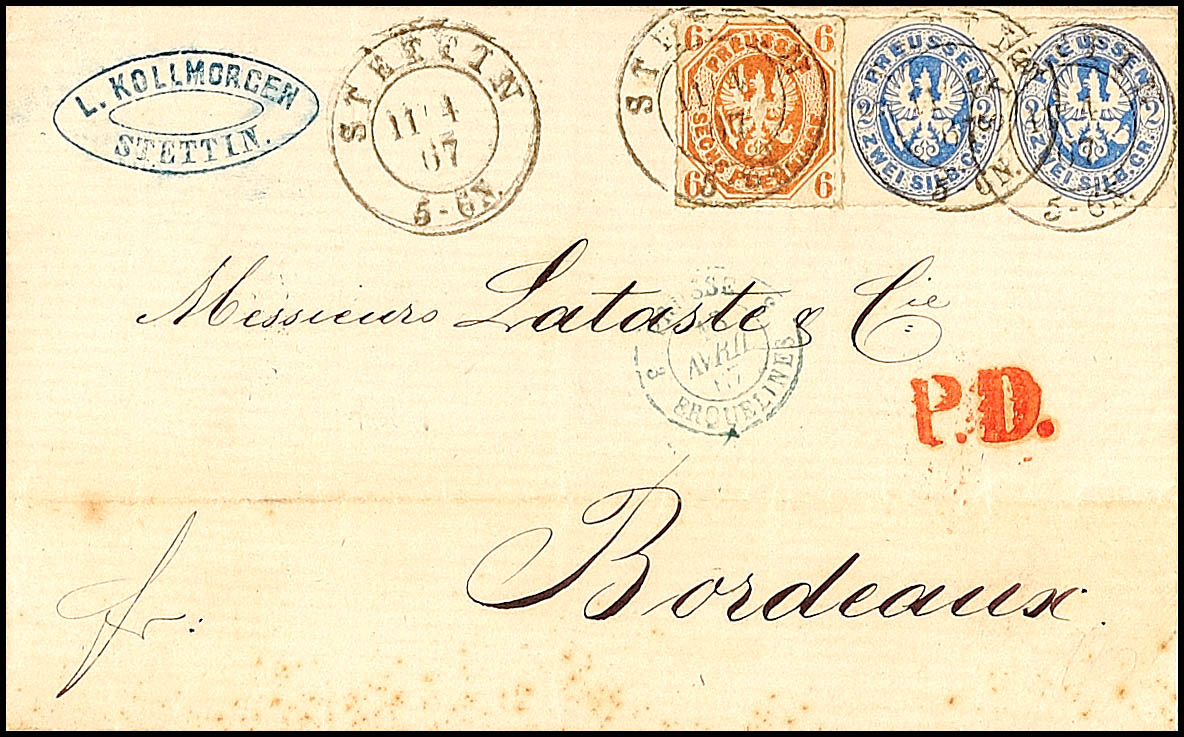 L. KOLLMORGEN
STETTIN.
STETTIN
11 4
67
5-6N.
STETTIN
11 4
67
5
6 PREUSSEN 6
6 SECHS PFENNINGE 6
PREUSSEN
2 2
ZWEI SILB.GR.
5-6N.
PREUSSEN
2 2
ZWEI SILB.GR.
5-6N.
Messieurs Lataste & Cie
PRUSSE
3
AVRIL
67
ERQUELINES
P.D.
fr:
Bordeaux.